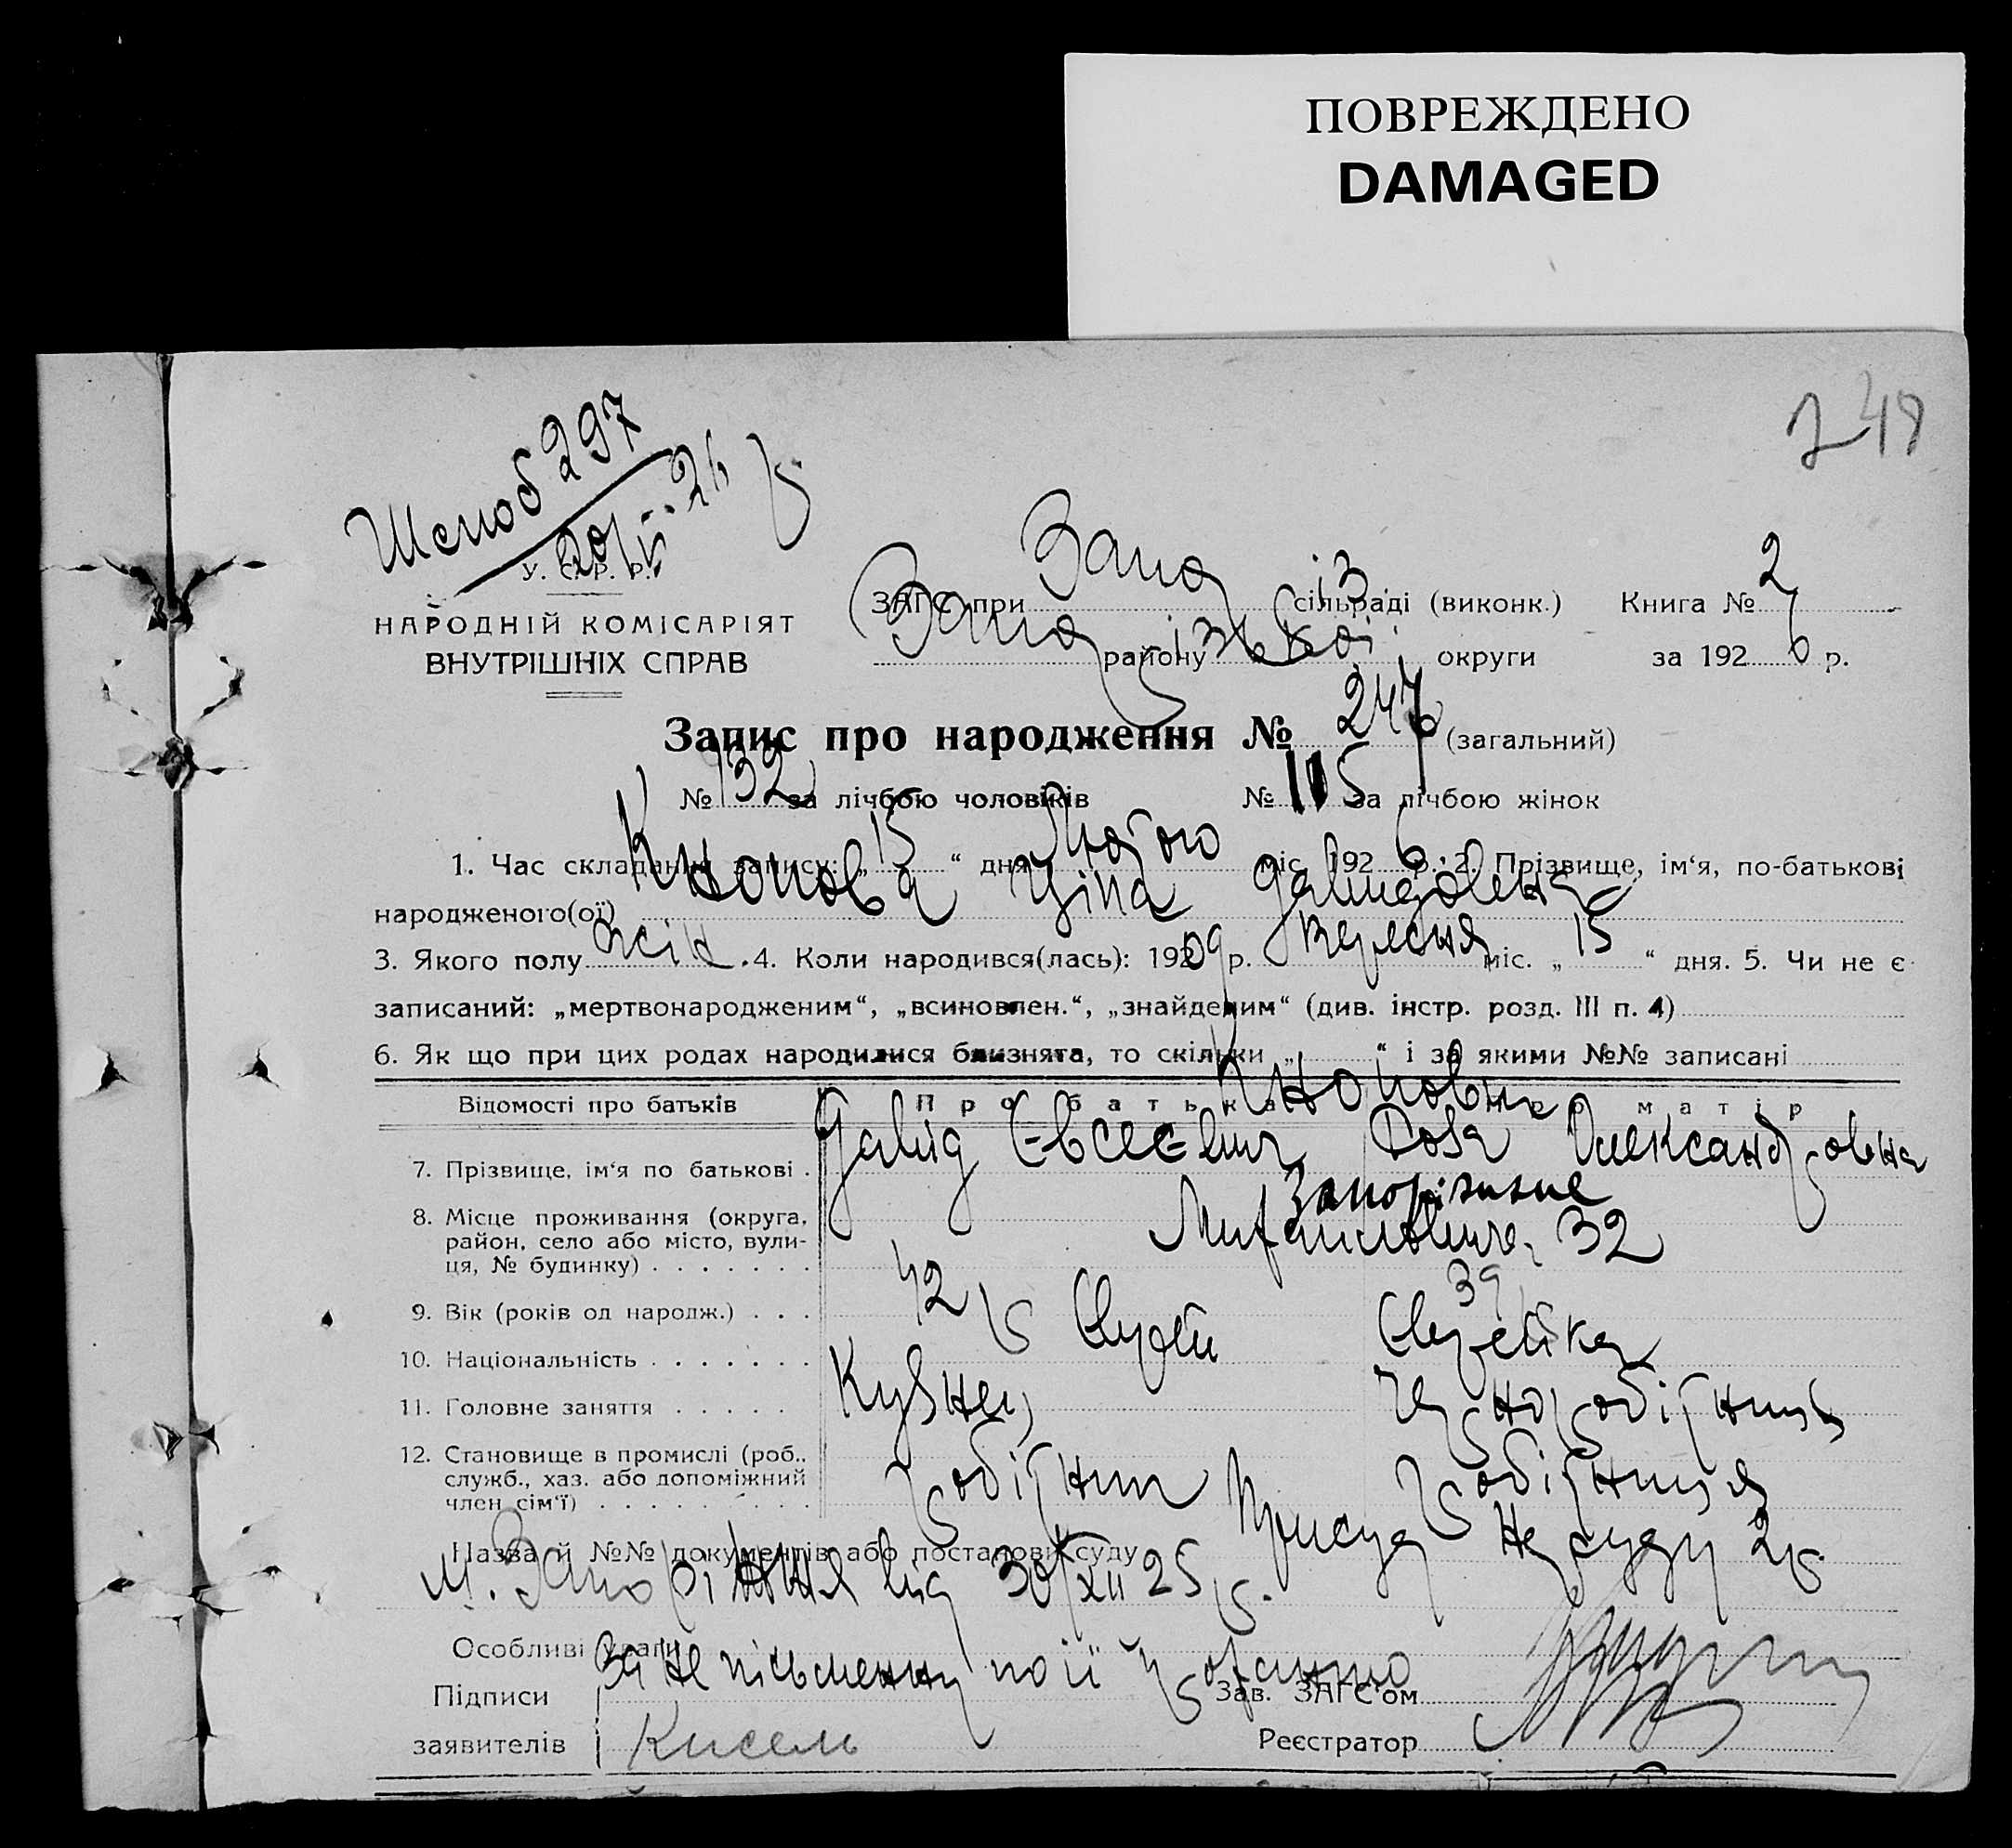 ПОВРЕЖДЕНО
DAMAGED
249
297
20/II 26 р
У. С. Р. Р.
НАРОДНІЙ КОМІСАРІЯТ
ВНУТРІШНІХ СПРАВ
ЗАГС при Запоріз сільраді (виконк.) Книга № 2
Запорізької району округи за 1926 р.
Запис про народження № 247 (загальний)
№ 132 за лічбою чоловіків № 115 за лічбою жінок
1. Час складання запису: „ 15 “ дня Лютого міс. 1926 р. 2. Прізвище, ім‘я, по-батькові
народженого(ої) Кнопова Ціпа Давидовна
3. Якого полу жін. 4. Коли народився(лась): 19209 р. вересня міс. „ 15 “ дня. 5. Чи не є
записаний: „мертвонародженим“, „всиновлен.“, „знайденим“ (див. інстр. розд. III п. 4)
6. Як що при цих родах народилися близнята, то скільки „ “ і за якими №№ записані
Відомості про батьків Про батька Про матір
Кнопови
7. Прізвище, ім‘я по батькові . Давід Євсеєвич Роза Олександровна
8. Місце проживання (округа, район, село або місто, вули-ця, № будинку) . . . . . . . Запоріжжє
32
9. Вік (років од народж.) . . . 42 р 39
10. Національність . . . . . . . Єврей Єврейка
11. Головне заняття . . . . . Кузнец Чорноробітниця
12. Становище в промислі (роб., служб., хаз. або допоміжний член сім‘ї) . . . . . . . . . робітник робітниця
Назва й №№ документів або постанови суду Присуд Нарсуду 2 р.
м. Запоріжжя від 30/XII 25 р.
Особливі уваги
За неписьменну по її проханню
Підписи
заявителів Кисель
Зав. ЗАГС‘ом
Реєстратор